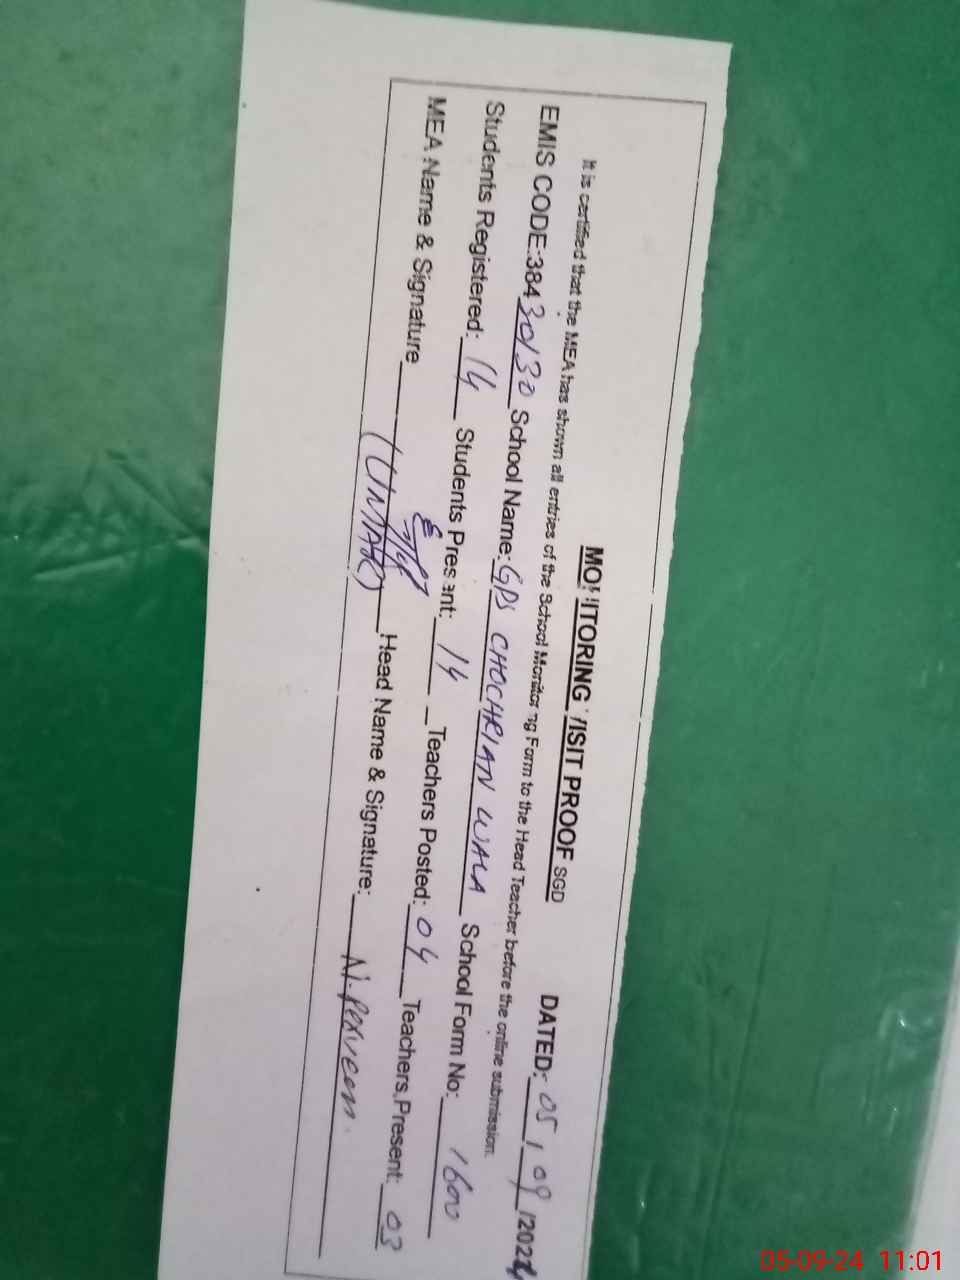 MONITORING VISIT PROOF SGD DATED: 05/09/2024
It is certified that the MEA has shown all entries of the School Monitoring Form to the Head Teacher before the online submission.
EMIS CODE:38430130 School Name: GPS CHOCHRIAN WALA School Form No: 1600
Students Registered: 14 Students Present: 14 Teachers Posted: 04 Teachers Present: 03
MEA Name & Signature (UMAR) Head Name & Signature: N. Perveen.
05-09-24 11:01